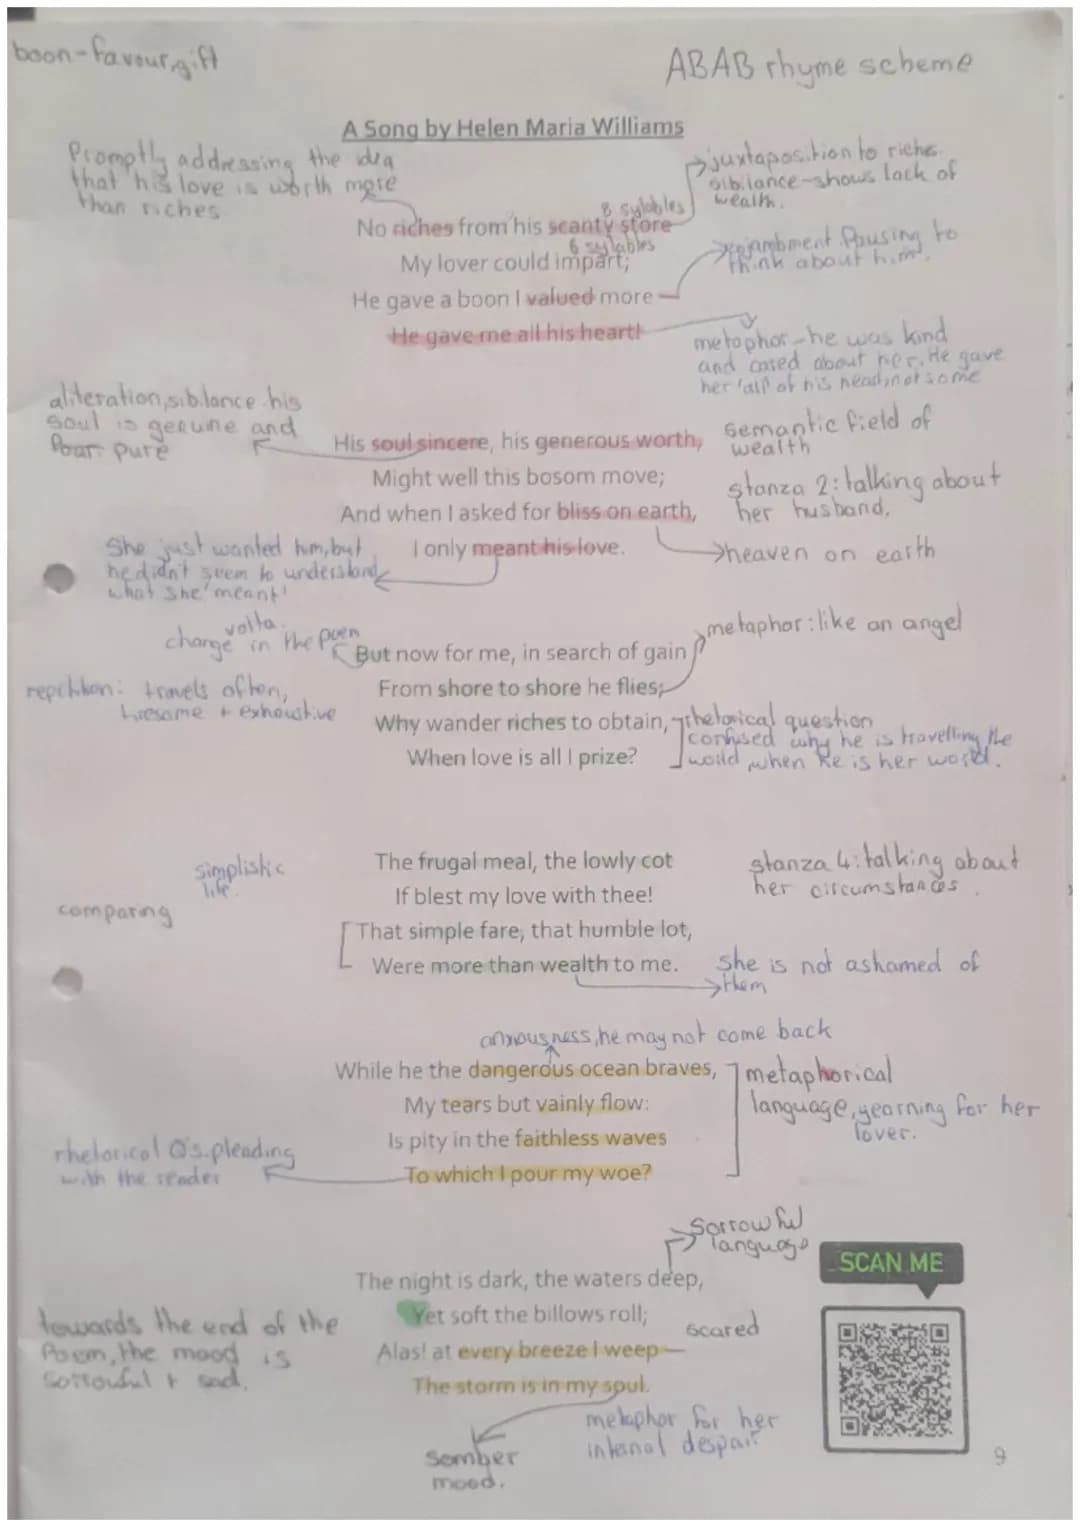 boon-favour,gift
ABAB rhyme scheme
A Song by Helen Maria Williams
Promptly addressing the idea
that his love is worth more
than riches
juxtaposition to riches.
sibilance-shows lack of
wealth.
8 sylables
No riches from his scanty store
6 sylables
My lover could impart;
enjambment. Pausing to
think about him.
He gave a boon I valued more
He gave me all his heart!
metaphor-he was kind
and cared about her. He gave
her 'all' of his heart, not some
aliteration, sibilance his
soul is genuine and
pure
His soul sincere, his generous worth,
semantic field of
wealth
Might well this bosom move;
stanza 2: talking about
her husband.
And when I asked for bliss on earth,
I only meant his love.
She just wanted him, but
he didn't seem to understand
what she 'meant'
heaven on earth
volta.
change in the poem
metaphor: like an angel
But now for me, in search of gain
From shore to shore he flies;
repitition: travels often,
tiresome + exhaustive
Why wander riches to obtain,
When love is all I prize?
rhetorical question
confused why he is travelling the
world, when he is her world.
simplistic
life.
comparing
The frugal meal, the lowly cot
If blest my love with thee!
That simple fare, that humble lot,
Were more than wealth to me.
stanza 4: talking about
her circumstances.
She is not ashamed of
them
anxousness, he may not come back
While he the dangerous ocean braves,
My tears but vainly flow:
Is pity in the faithless waves
To which I pour my woe?
metaphorical
language, yearning for her
lover.
rhetorical Q's-pleading
with the reader
Sorrowful
language
The night is dark, the waters deep,
Yet soft the billows roll;
Alas! at every breeze I weep—
The storm is in my soul.
scared
towards the end of the
Poem, the mood is
sorrowful + sad.
metaphor for her
internal despair
Somber
mood.
SCAN ME
9